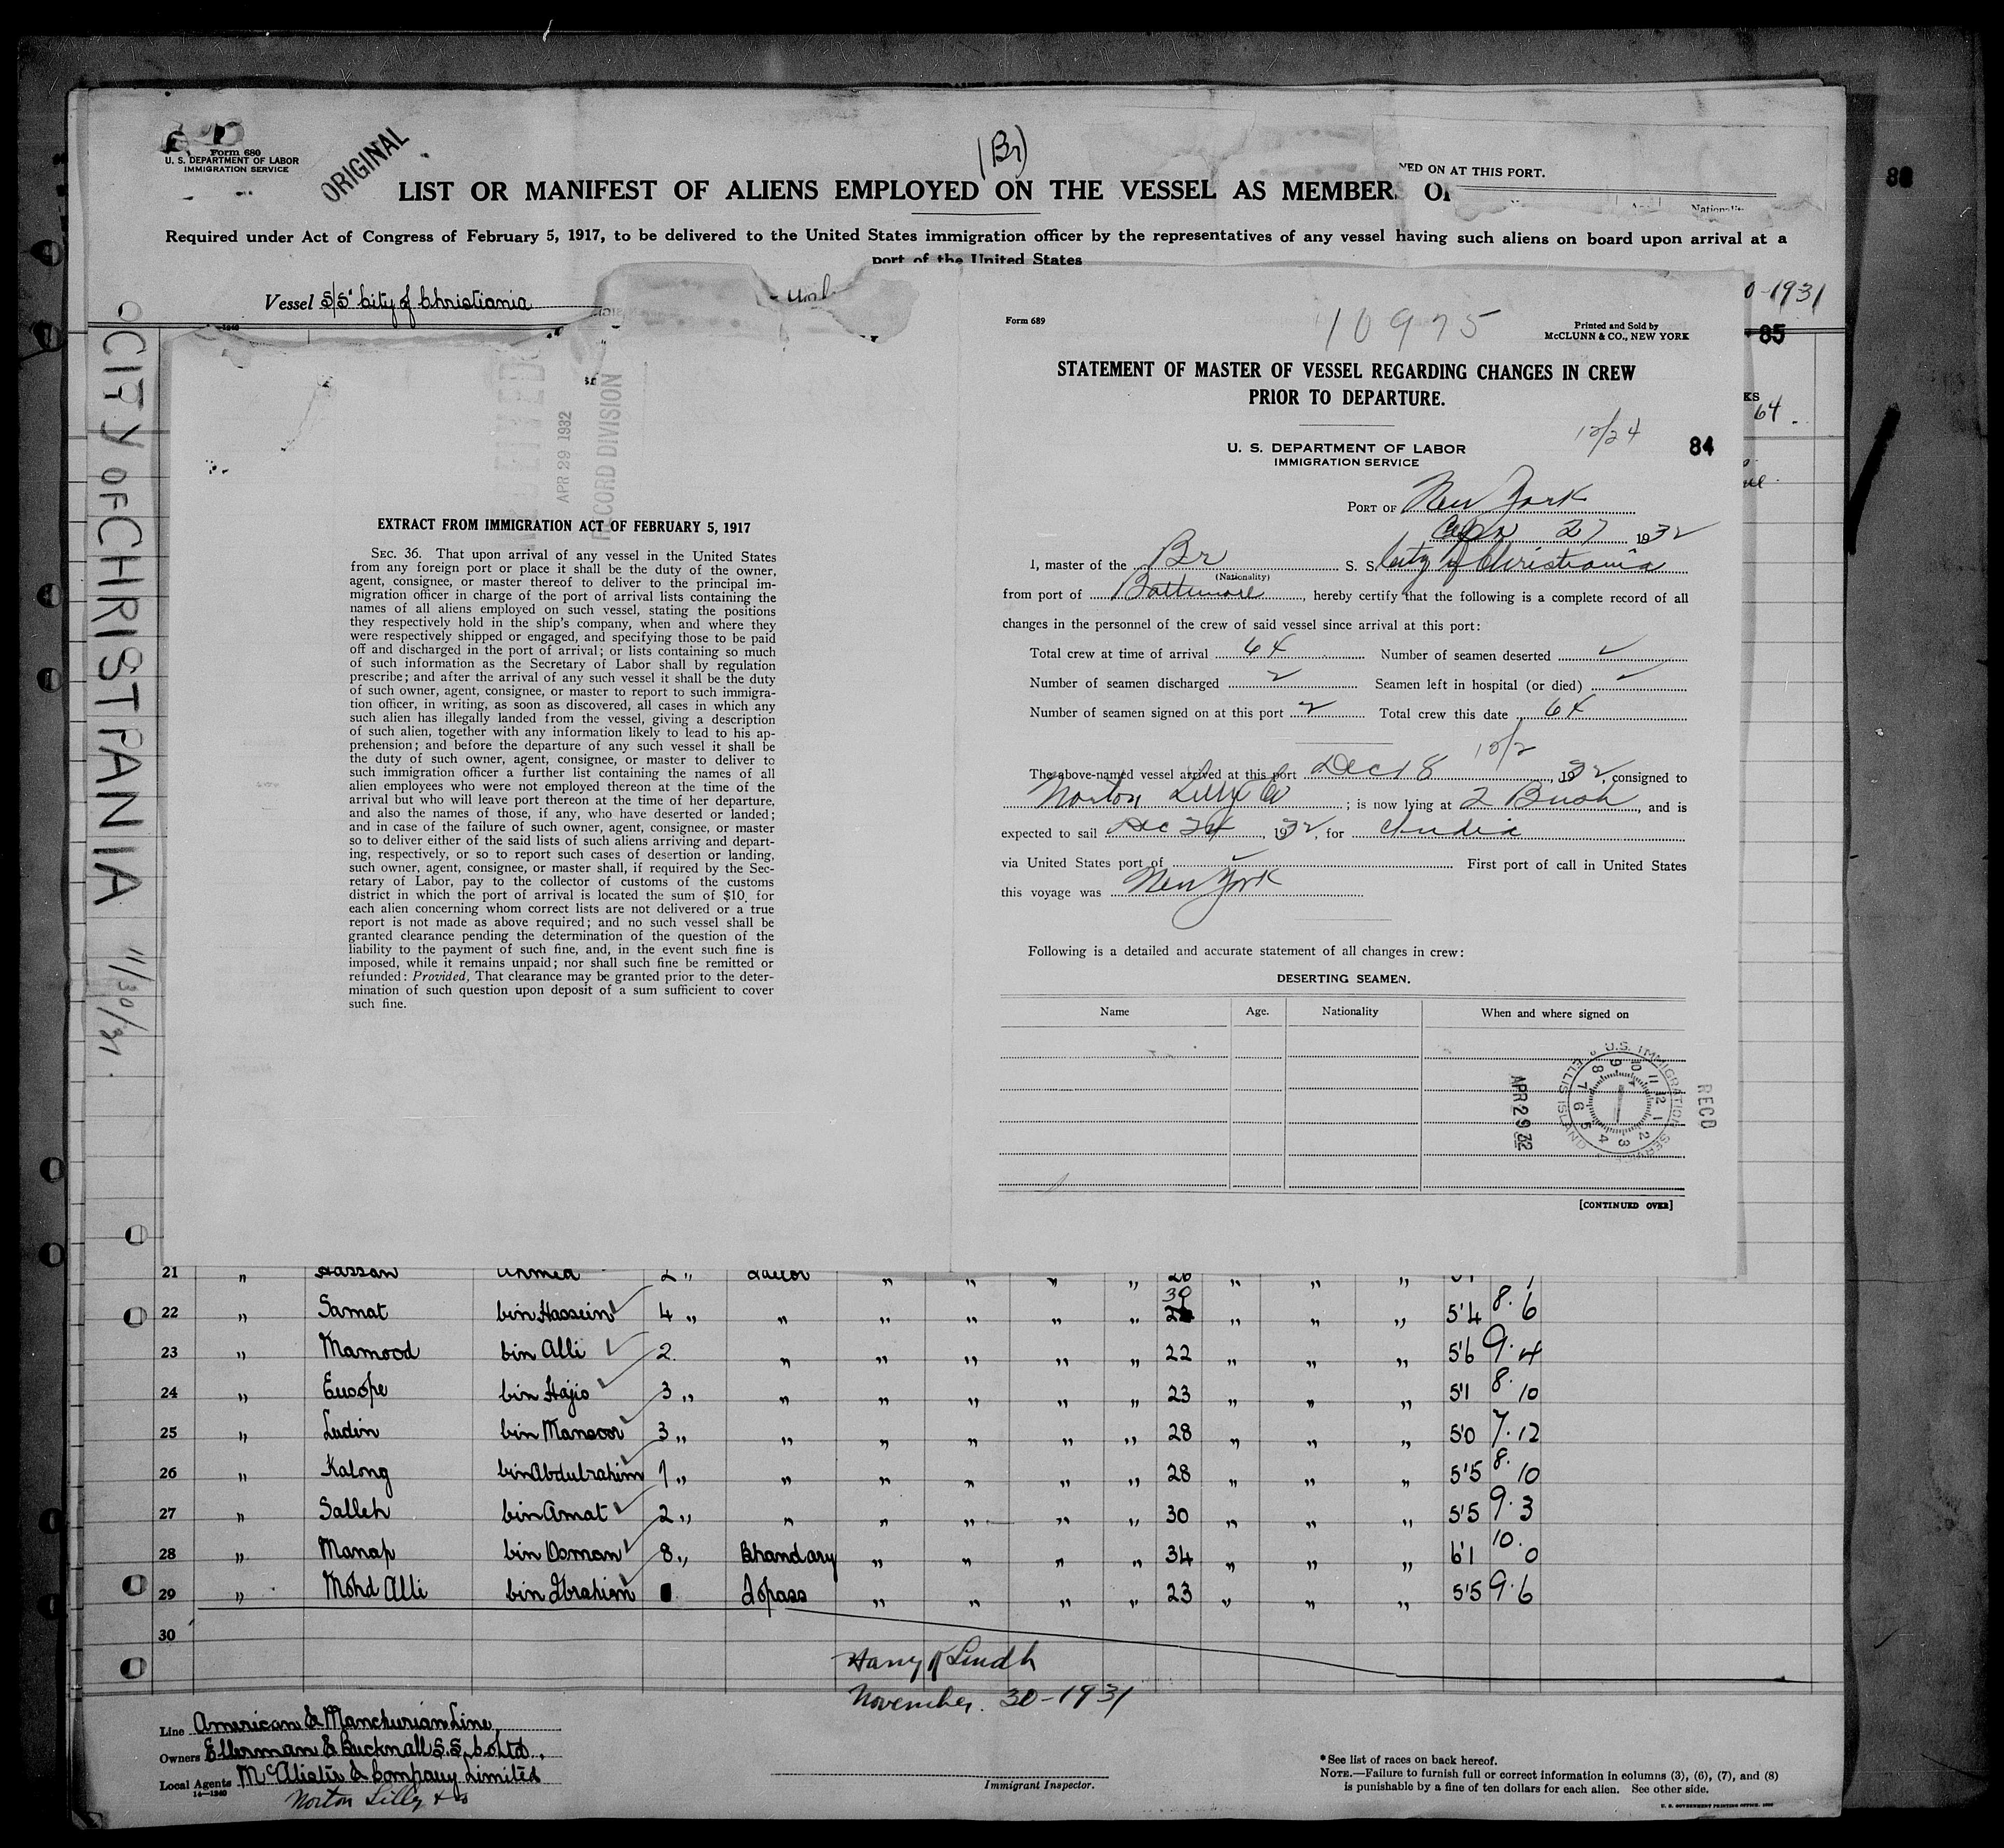 Form 680
U. S. DEPARTMENT OF LABOR
IMMIGRATION SERVICE
ORIGINAL
(Br)
NED ON AT THIS PORT.
LIST OR MANIFEST OF ALIENS EMPLOYED ON THE VESSEL AS MEMBER
Required under Act of Congress of February 5, 1917, to be delivered to the United States immigration officer by the representatives of any vessel having such aliens on board upon arrival at a
port of the United States
Vessel S/S "City of Christiania
0-1931
85
KS
64
88
CITY OF CHRISTPANIA 11/30/31.
APR 29 1932
RECORD DIVISION
EXTRACT FROM IMMIGRATION ACT OF FEBRUARY 5, 1917
SEC. 36. That upon arrival of any vessel in the United States
from any foreign port or place it shall be the duty of the owner,
agent, consignee, or master thereof to deliver to the principal im-
migration officer in charge of the port of arrival lists containing the
names of all aliens employed on such vessel, stating the positions
they respectively hold in the ship's company, when and where they
were respectively shipped or engaged, and specifying those to be paid
off and discharged in the port of arrival; or lists containing so much
of such information as the Secretary of Labor shall by regulation
prescribe; and after the arrival of any such vessel it shall be the duty
of such owner, agent, consignee, or master to report to such immigra-
tion officer, in writing, as soon as discovered, all cases in which any
such alien has illegally landed from the vessel, giving a description
of such alien, together with any information likely to lead to his ap-
prehension; and before the departure of any such vessel it shall be
the duty of such owner, agent, consignee, or master to deliver to
such immigration officer a further list containing the names of all
alien employees who were not employed thereon at the time of the
arrival but who will leave port thereon at the time of her departure,
and also the names of those, if any, who have deserted or landed;
and in case of the failure of such owner, agent, consignee, or master
so to deliver either of the said lists of such aliens arriving and depart-
ing, respectively, or so to report such cases of desertion or landing,
such owner, agent, consignee, or master shall, if required by the Sec-
retary of Labor, pay to the collector of customs of the customs
district in which the port of arrival is located the sum of $10. for
each alien concerning whom correct lists are not delivered or a true
report is not made as above required; and no such vessel shall be
granted clearance pending the determination of the question of the
liability to the payment of such fine, and, in the event such fine is
imposed, while it remains unpaid; nor shall such fine be remitted or
refunded: Provided, That clearance may be granted prior to the deter-
mination of such question upon deposit of a sum sufficient to cover
such fine.
Form 689
10975
Printed and Sold by
McCLUNN & CO., NEW YORK
STATEMENT OF MASTER OF VESSEL REGARDING CHANGES IN CREW
PRIOR TO DEPARTURE.
12/24
U. S. DEPARTMENT OF LABOR
IMMIGRATION SERVICE
84
PORT OF New York
Apr 27 1932
I, master of the Br S. S. City of Christiania
(Nationality)
from port of Baltimore, hereby certify that the following is a complete record of all
changes in the personnel of the crew of said vessel since arrival at this port:
Total crew at time of arrival 64 Number of seamen deserted ✓
Number of seamen discharged 2 Seamen left in hospital (or died) ✓
Number of seamen signed on at this port 2 Total crew this date 64
The above-named vessel arrived at this port Dec 18, 1932, consigned to
Norton Lilly Co; is now lying at 2 Bush, and is
expected to sail Dec 24, 1932, for India
via United States port of ✓ First port of call in United States
this voyage was New York
Following is a detailed and accurate statement of all changes in crew:
DESERTING SEAMEN.
Name Age. Nationality When and where signed on
U.S. IMMIGRATION SERVICE ELLIS ISLAND
APR 29 32
RECD
[CONTINUED OVER]
21 " Hassan Ahmed 2 " Sailor " " " " 26 " " "
22 " Samat bin Hassein 4 " " " " " " 30 " " " 5'4 8.6
23 " Mamood bin Alli 2. " " " " " 22 " " " 5'6 9.4
24 " Eusope bin Hajio 3 " " " " " " 23 " " " 5'1 8.10
25 " Ludin bin Mansoor 3 " " " " " " 28 " " " 5'0 7.12
26 " Kalong bin Abdulrahim 1 " " " " " " 28 " " " 5'5 8.10
27 " Salleh bin Amat 2 " " " " " " 30 " " " 5'5 9.3
28 " Manap bin Osman 8 " Bhandary " " " " 34 " " " 6'1 10.0
29 " Mohd Alli bin Ibrahim Topass " " " " 23 " " " 5'5 9.6
30
Harry Lindh
November. 30-1931
Line American & Manchurian Line,
Owners Ellerman & Bucknall S.S. Co Ltd.
Local Agents McAlister & Company Limited
14-1240
Norton Lilly & Co
Immigrant Inspector.
*See list of races on back hereof.
NOTE.—Failure to furnish full or correct information in columns (3), (6), (7), and (8)
is punishable by a fine of ten dollars for each alien. See other side.
U. S. GOVERNMENT PRINTING OFFICE